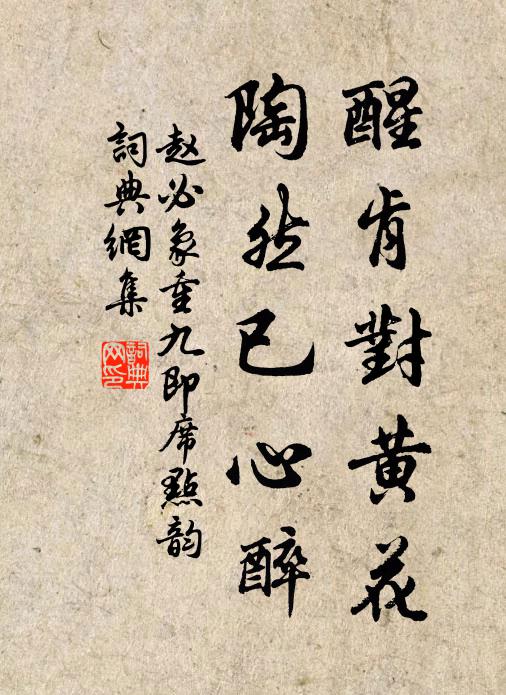 醒肯對黄花
陶然已心醉
赵必象重九即席點韵
詞典網集
詞典网印